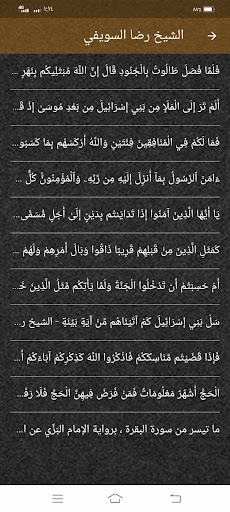 ١:١٤
٨٧%
الشيخ رضا السويفي
فَلَمَّا فَصَلَ طَالُوتُ بِالْجُنُودِ قَالَ إِنَّ اللَّهَ مُبْتَلِيكُم بِنَهَرٍ ...
أَلَمْ تَرَ إِلَى الْمَلَإِ مِن بَنِي إِسْرَائِيلَ مِن بَعْدِ مُوسَىٰ إِذْ قَا...
فَمَا لَكُمْ فِي الْمُنَافِقِينَ فِئَتَيْنِ وَاللَّهُ أَرْكَسَهُم بِمَا كَسَبُو...
ءَامَنَ ٱلرَّسُولُ بِمَآ أُنزِلَ إِلَيْهِ مِن رَّبِّهِۦ وَٱلْمُؤْمِنُونَۚ كُلٌّ ...
يَا أَيُّهَا الَّذِينَ آمَنُوا إِذَا تَدَايَنتُم بِدَيْنٍ إِلَىٰ أَجَلٍ مُّسَمًّى...
كَمَثَلِ الَّذِينَ مِن قَبْلِهِمْ قَرِيبًا ذَاقُوا وَبَالَ أَمْرِهِمْ وَلَهُمْ ...
أَمْ حَسِبْتُمْ أَن تَدْخُلُوا الْجَنَّةَ وَلَمَّا يَأْتِكُم مَّثَلُ الَّذِينَ خَـ...
سَلْ بَنِي إِسْرَائِيلَ كَمْ آتَيْنَاهُم مِّنْ آيَةٍ بَيِّنَةٍ - الشيخ ر...
فَإِذَا قَضَيْتُم مَّنَاسِكَكُمْ فَاذْكُرُوا اللَّهَ كَذِكْرِكُمْ آبَاءَكُمْ أَ...
الْحَجُّ أَشْهُرٌ مَّعْلُومَاتٌ فَمَن فَرَضَ فِيهِنَّ الْحَجَّ فَلَا رَفَـ...
ما تيسر من سورة البقرة ، برواية الإمام البَزِّي عن ا...